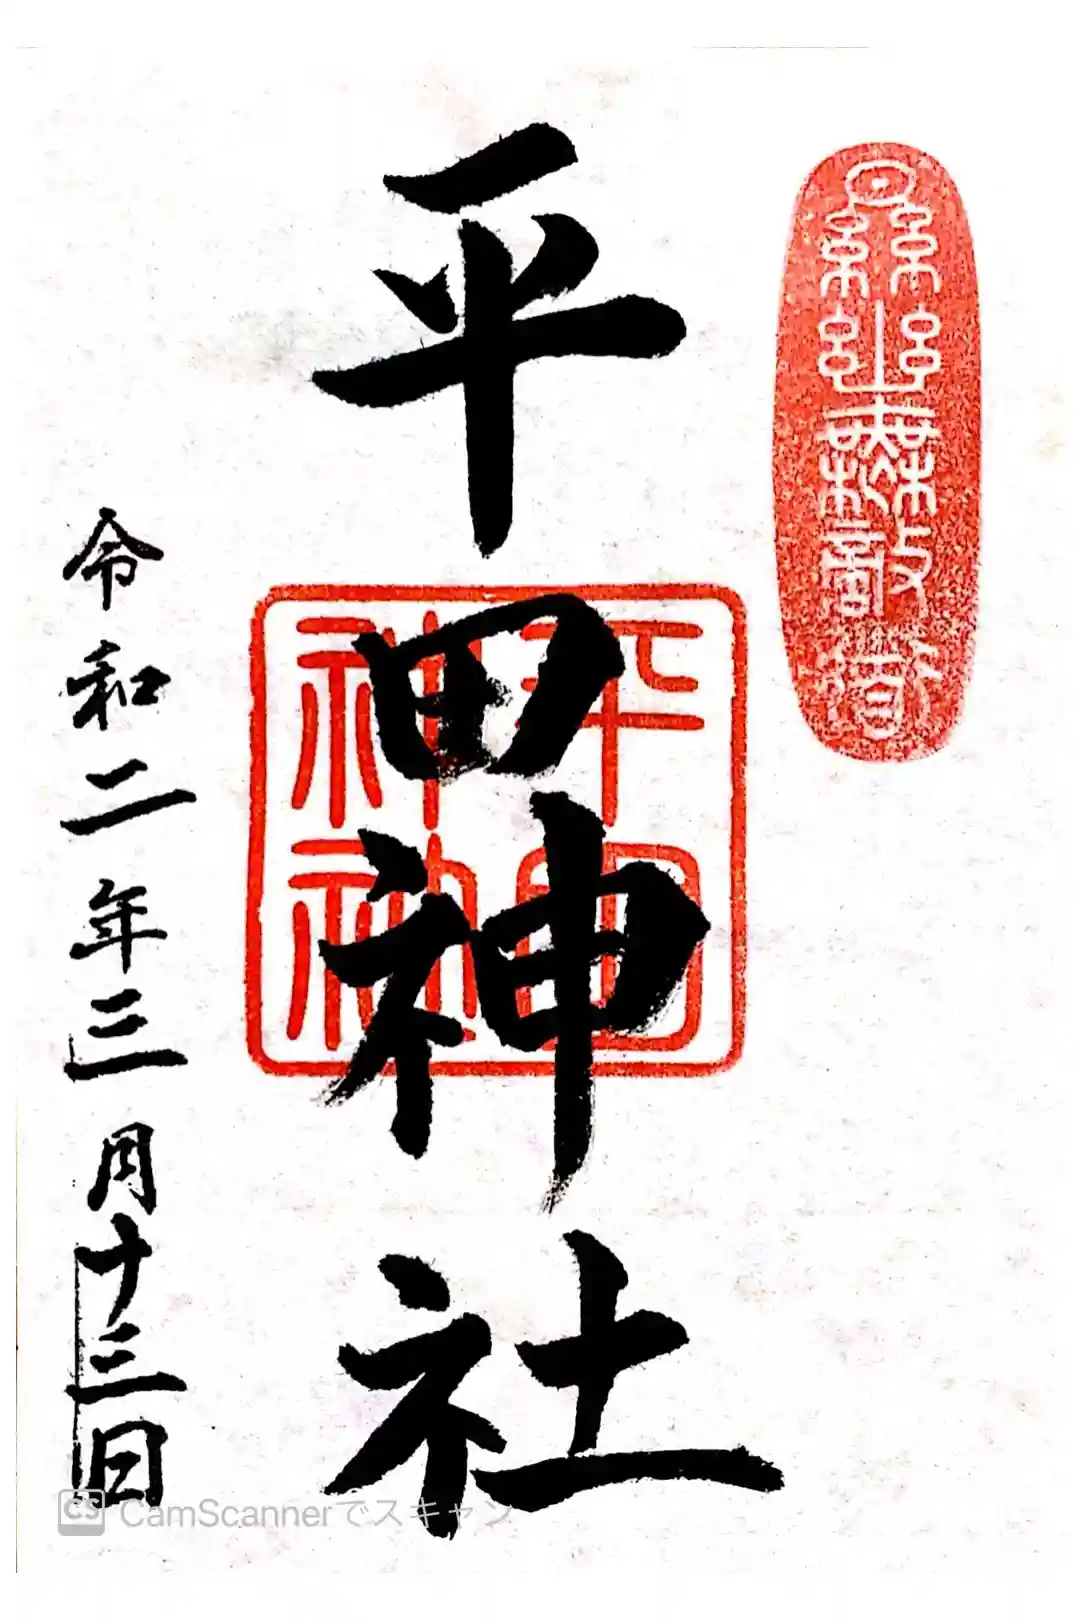 㬎幽無敵道
平田神社
平田
神社
令和二年三月十三日
CS CamScannerでスキャン